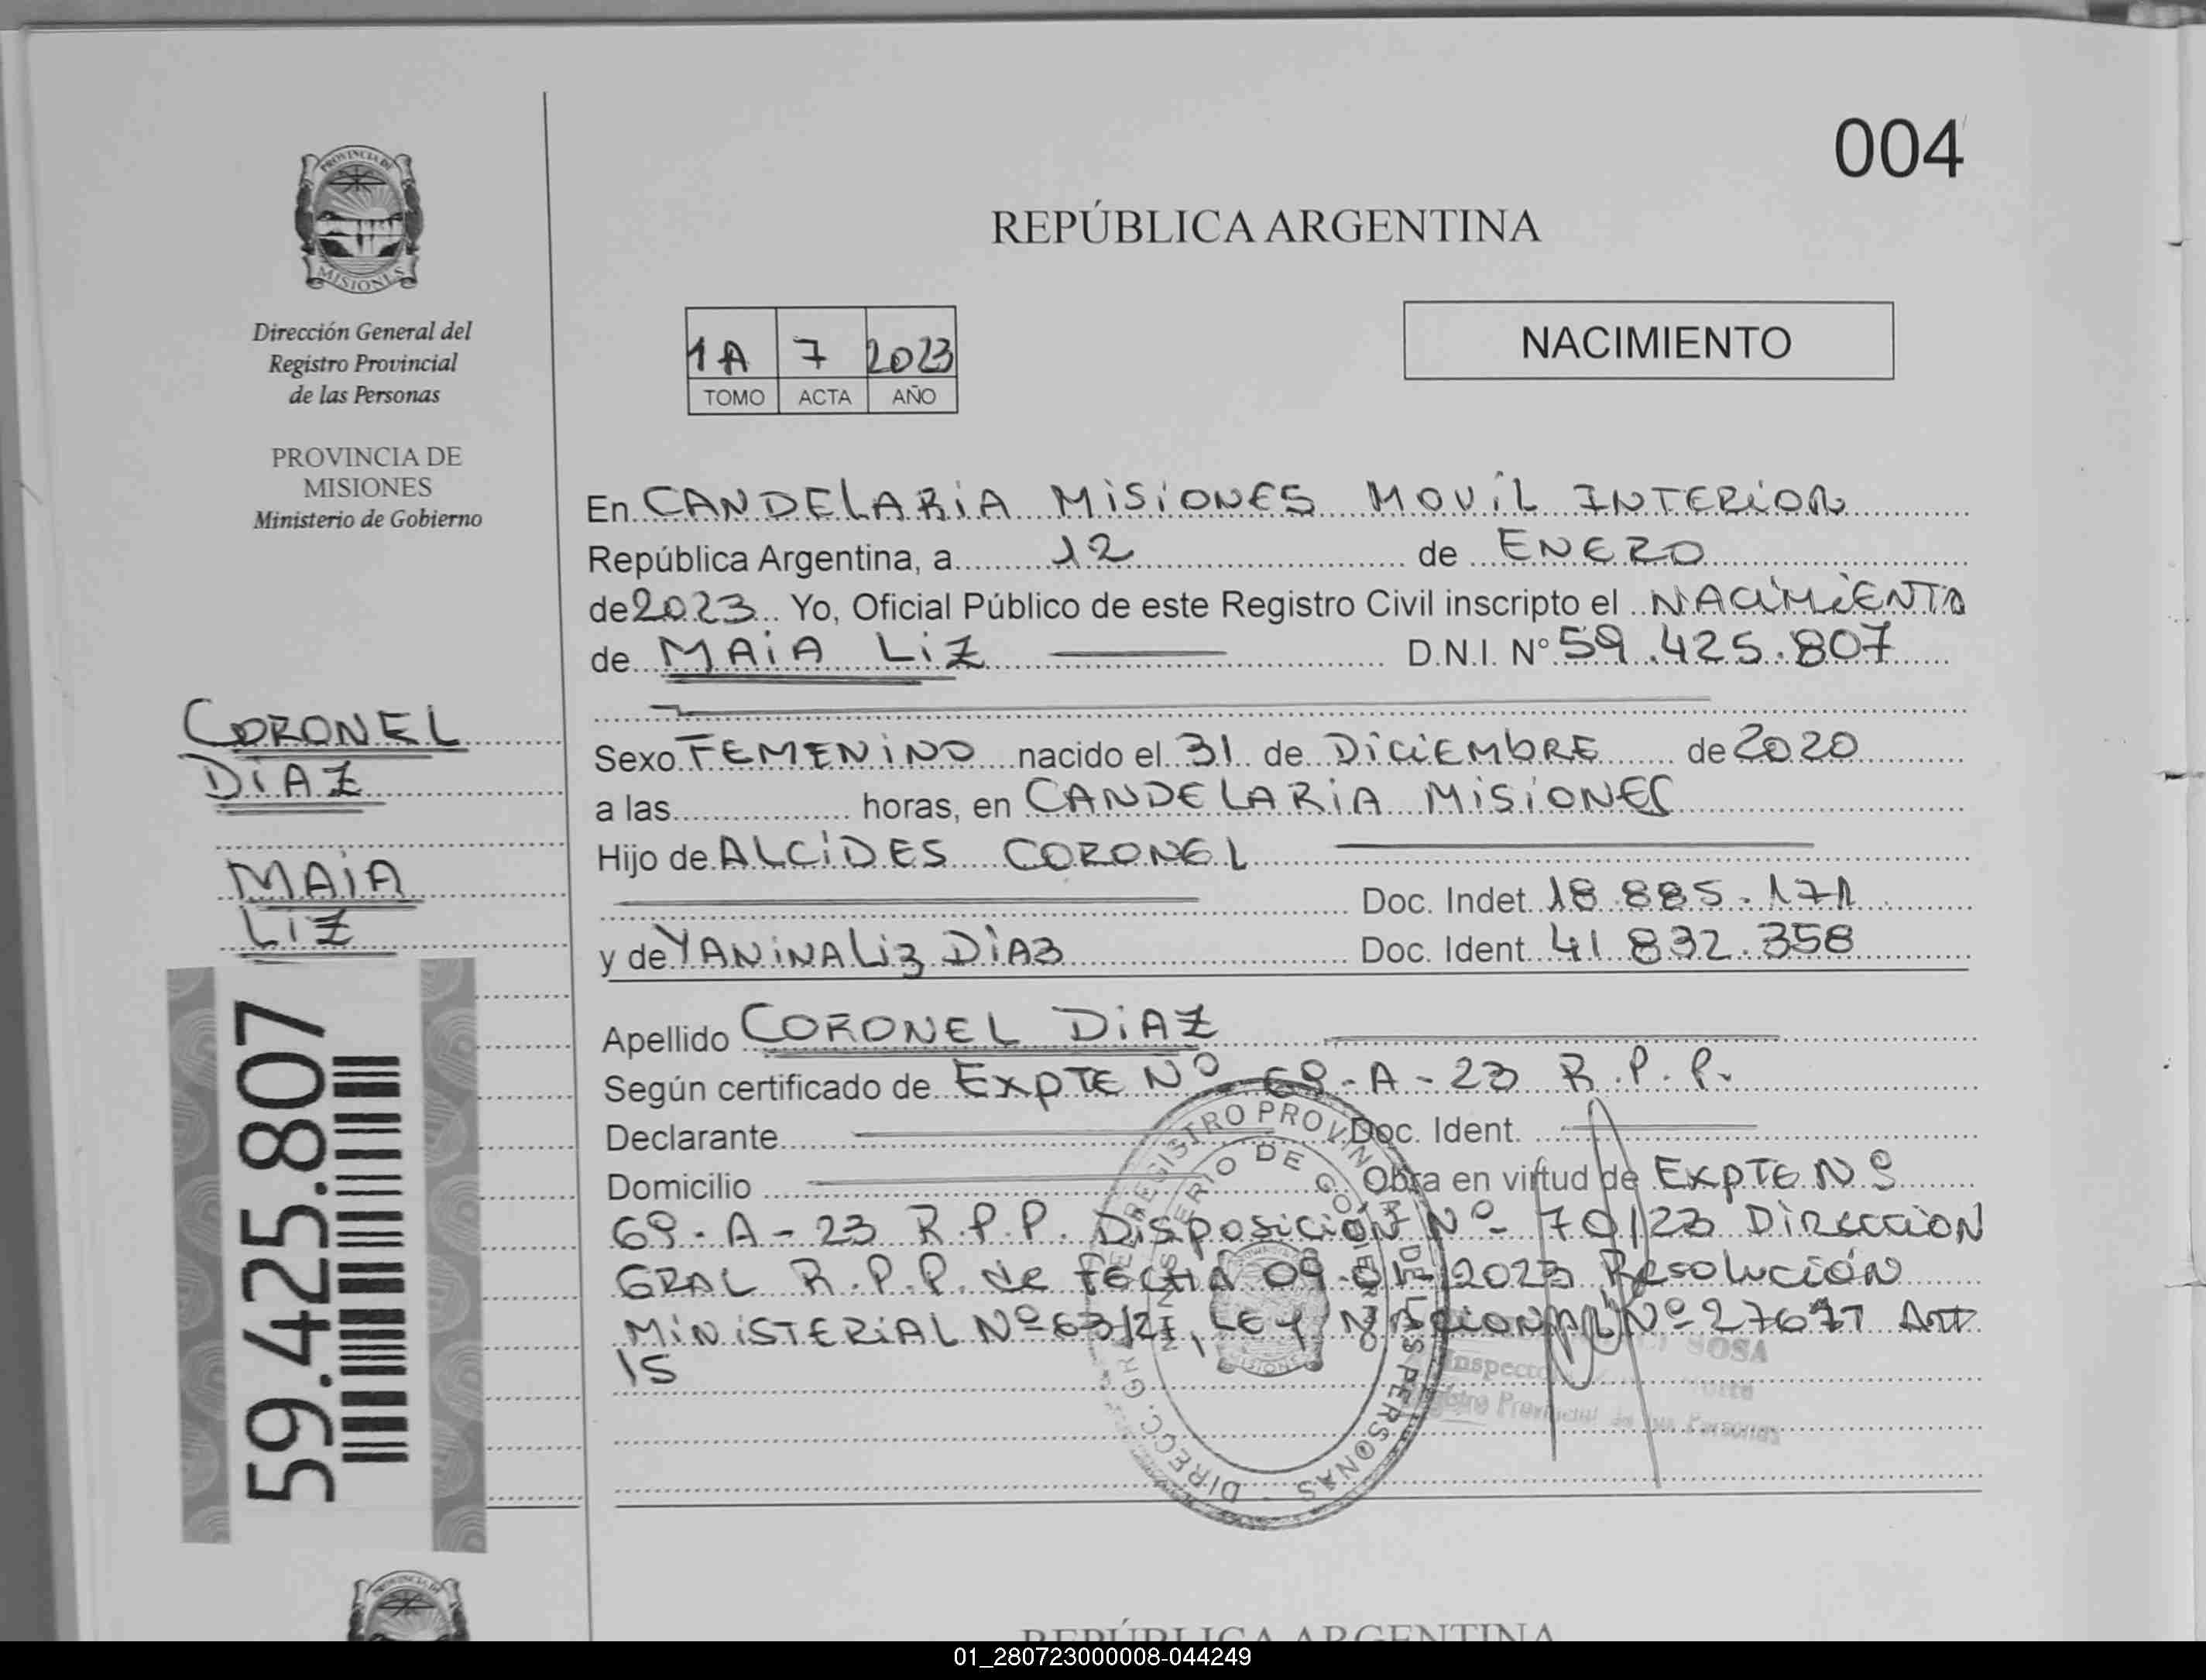 004
PROVINCIA DE
MISIONES
REPÚBLICA ARGENTINA
Dirección General del
Registro Provincial
de las Personas
PROVINCIA DE
MISIONES
Ministerio de Gobierno
1A 7 2023
TOMO ACTA AÑO
NACIMIENTO
En CANDELARIA MISIONES MOVIL INTERIOR
República Argentina, a 12 de ENERO
de 2023 Yo, Oficial Público de este Registro Civil inscripto el NACIMIENTO
de MAIA LIZ D.N.I. Nº 59.425.807
Sexo FEMENINO nacido el 31 de DICIEMBRE de 2020
a las horas, en CANDELARIA MISIONES
Hijo de ALCIDES CORONEL
Doc. Indet. 18.885.171
y de YANINA LIZ DIAZ Doc. Ident. 41.832.358
Apellido CORONEL DIAZ
Según certificado de EXPTE Nº 69-A-23 R.P.P.
Declarante Doc. Ident.
Domicilio Obra en virtud de EXPTE Nº
69-A-23 R.P.P. DISPOSICIÓN Nº 70/23 DIRECCION
GRAL R.P.P. de FECHA 09-01-2023 Resolución
MINISTERIAL Nº 63/21, LEY NACIONAL Nº Art
15
CORONEL
DIAZ
MAIA
LIZ
59.425.807
DIRECC. GRAL. DEL REGISTRO PROVINCIAL DE LAS PERSONAS
MINISTERIO DE GOBIERNO
MISIONES
SOSA
Inspector
Registro Provincial de las Personas
REPÚBLICA ARGENTINA
01_280723000008-044249